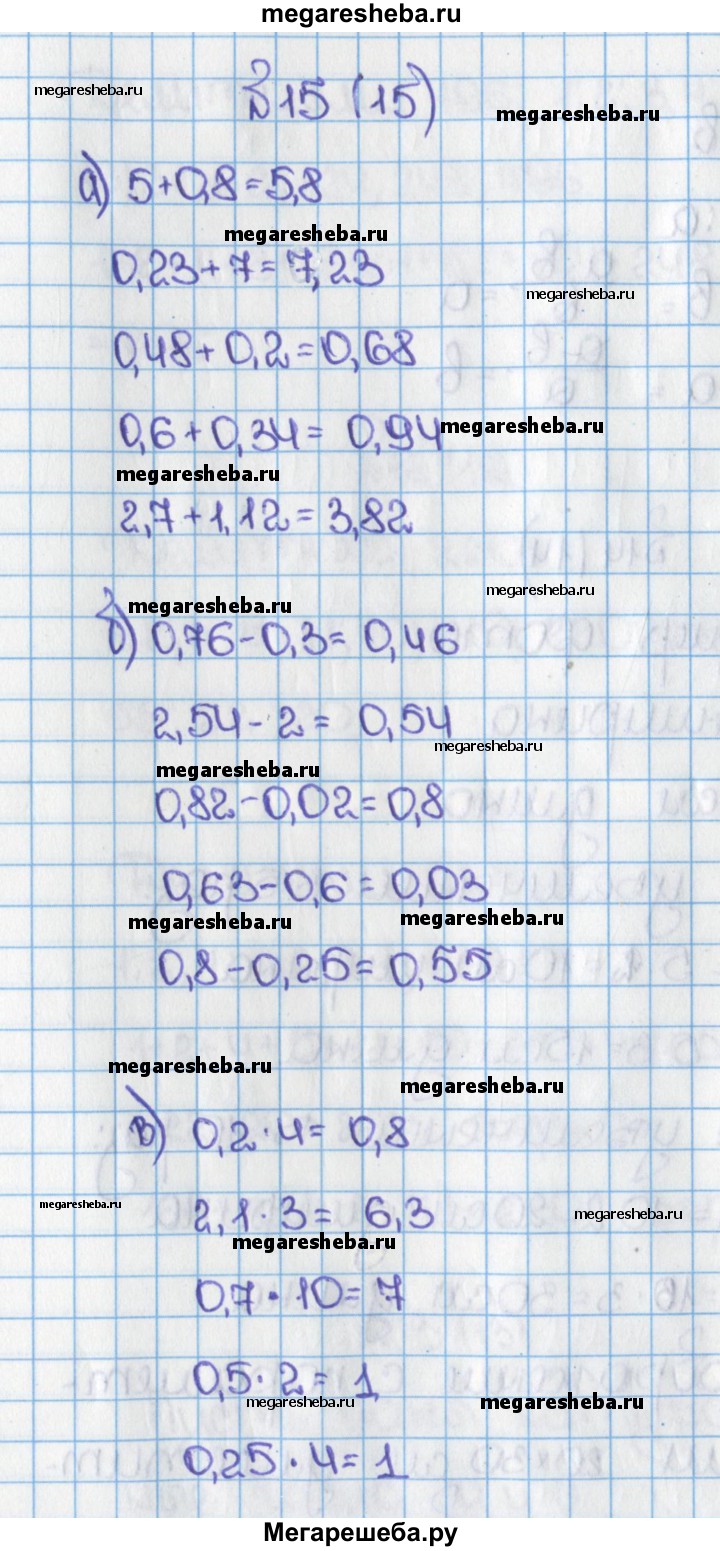 megaresheba.ru
megaresheba.ru
№15 (15)
megaresheba.ru
а) 5+0,8=5,8
megaresheba.ru
0,23+7=7,23
megaresheba.ru
0,48+0,2=0,68
0,6+0,34= 0,94
megaresheba.ru
megaresheba.ru
2,7+1,12=3,82
megaresheba.ru
megaresheba.ru
б) 0,76-0,3= 0,46
2,54-2= 0,54
megaresheba.ru
megaresheba.ru
0,82-0,02=0,8
0,63-0,6=0,03
megaresheba.ru
megaresheba.ru
0,8-0,25=0,55
megaresheba.ru
megaresheba.ru
в) 0,2·4= 0,8
megaresheba.ru
2,1·3= 6,3
megaresheba.ru
megaresheba.ru
0,7·10=7
0,5·2=1
megaresheba.ru
megaresheba.ru
0,25·4=1
Мегарешеба.ру